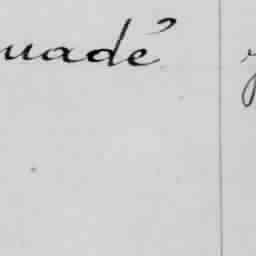 uadé